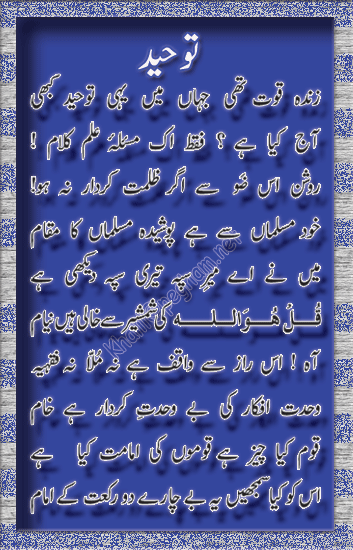 توحید
زندہ قوت تھی جہاں میں یہی توحید کبھی
آج کیا ہے ؟ فقط اک مسئلۂ علم کلام !
روشن اس ضَو سے اگر ظلمت کردار نہ ہو!
خود مسلماں سے ہے پوشیدہ مسلماں کا مقام
میں نے اے میرِ سپہ تیری سپہ دیکھی ہے
قُلْ ھُوَاللہ کی شمشیر سے خالی ہیں نیام
آہ ! اس راز سے واقف ہے نہ مُلّا نہ فقیہہ
وحدت افکار کی بے وحدتِ کردار ہے خام
قوم کیا چیز ہے قوموں کی امامت کیا ہے
اس کو کیا سمجھیں یہ بے چارے دو رکعت کے امام